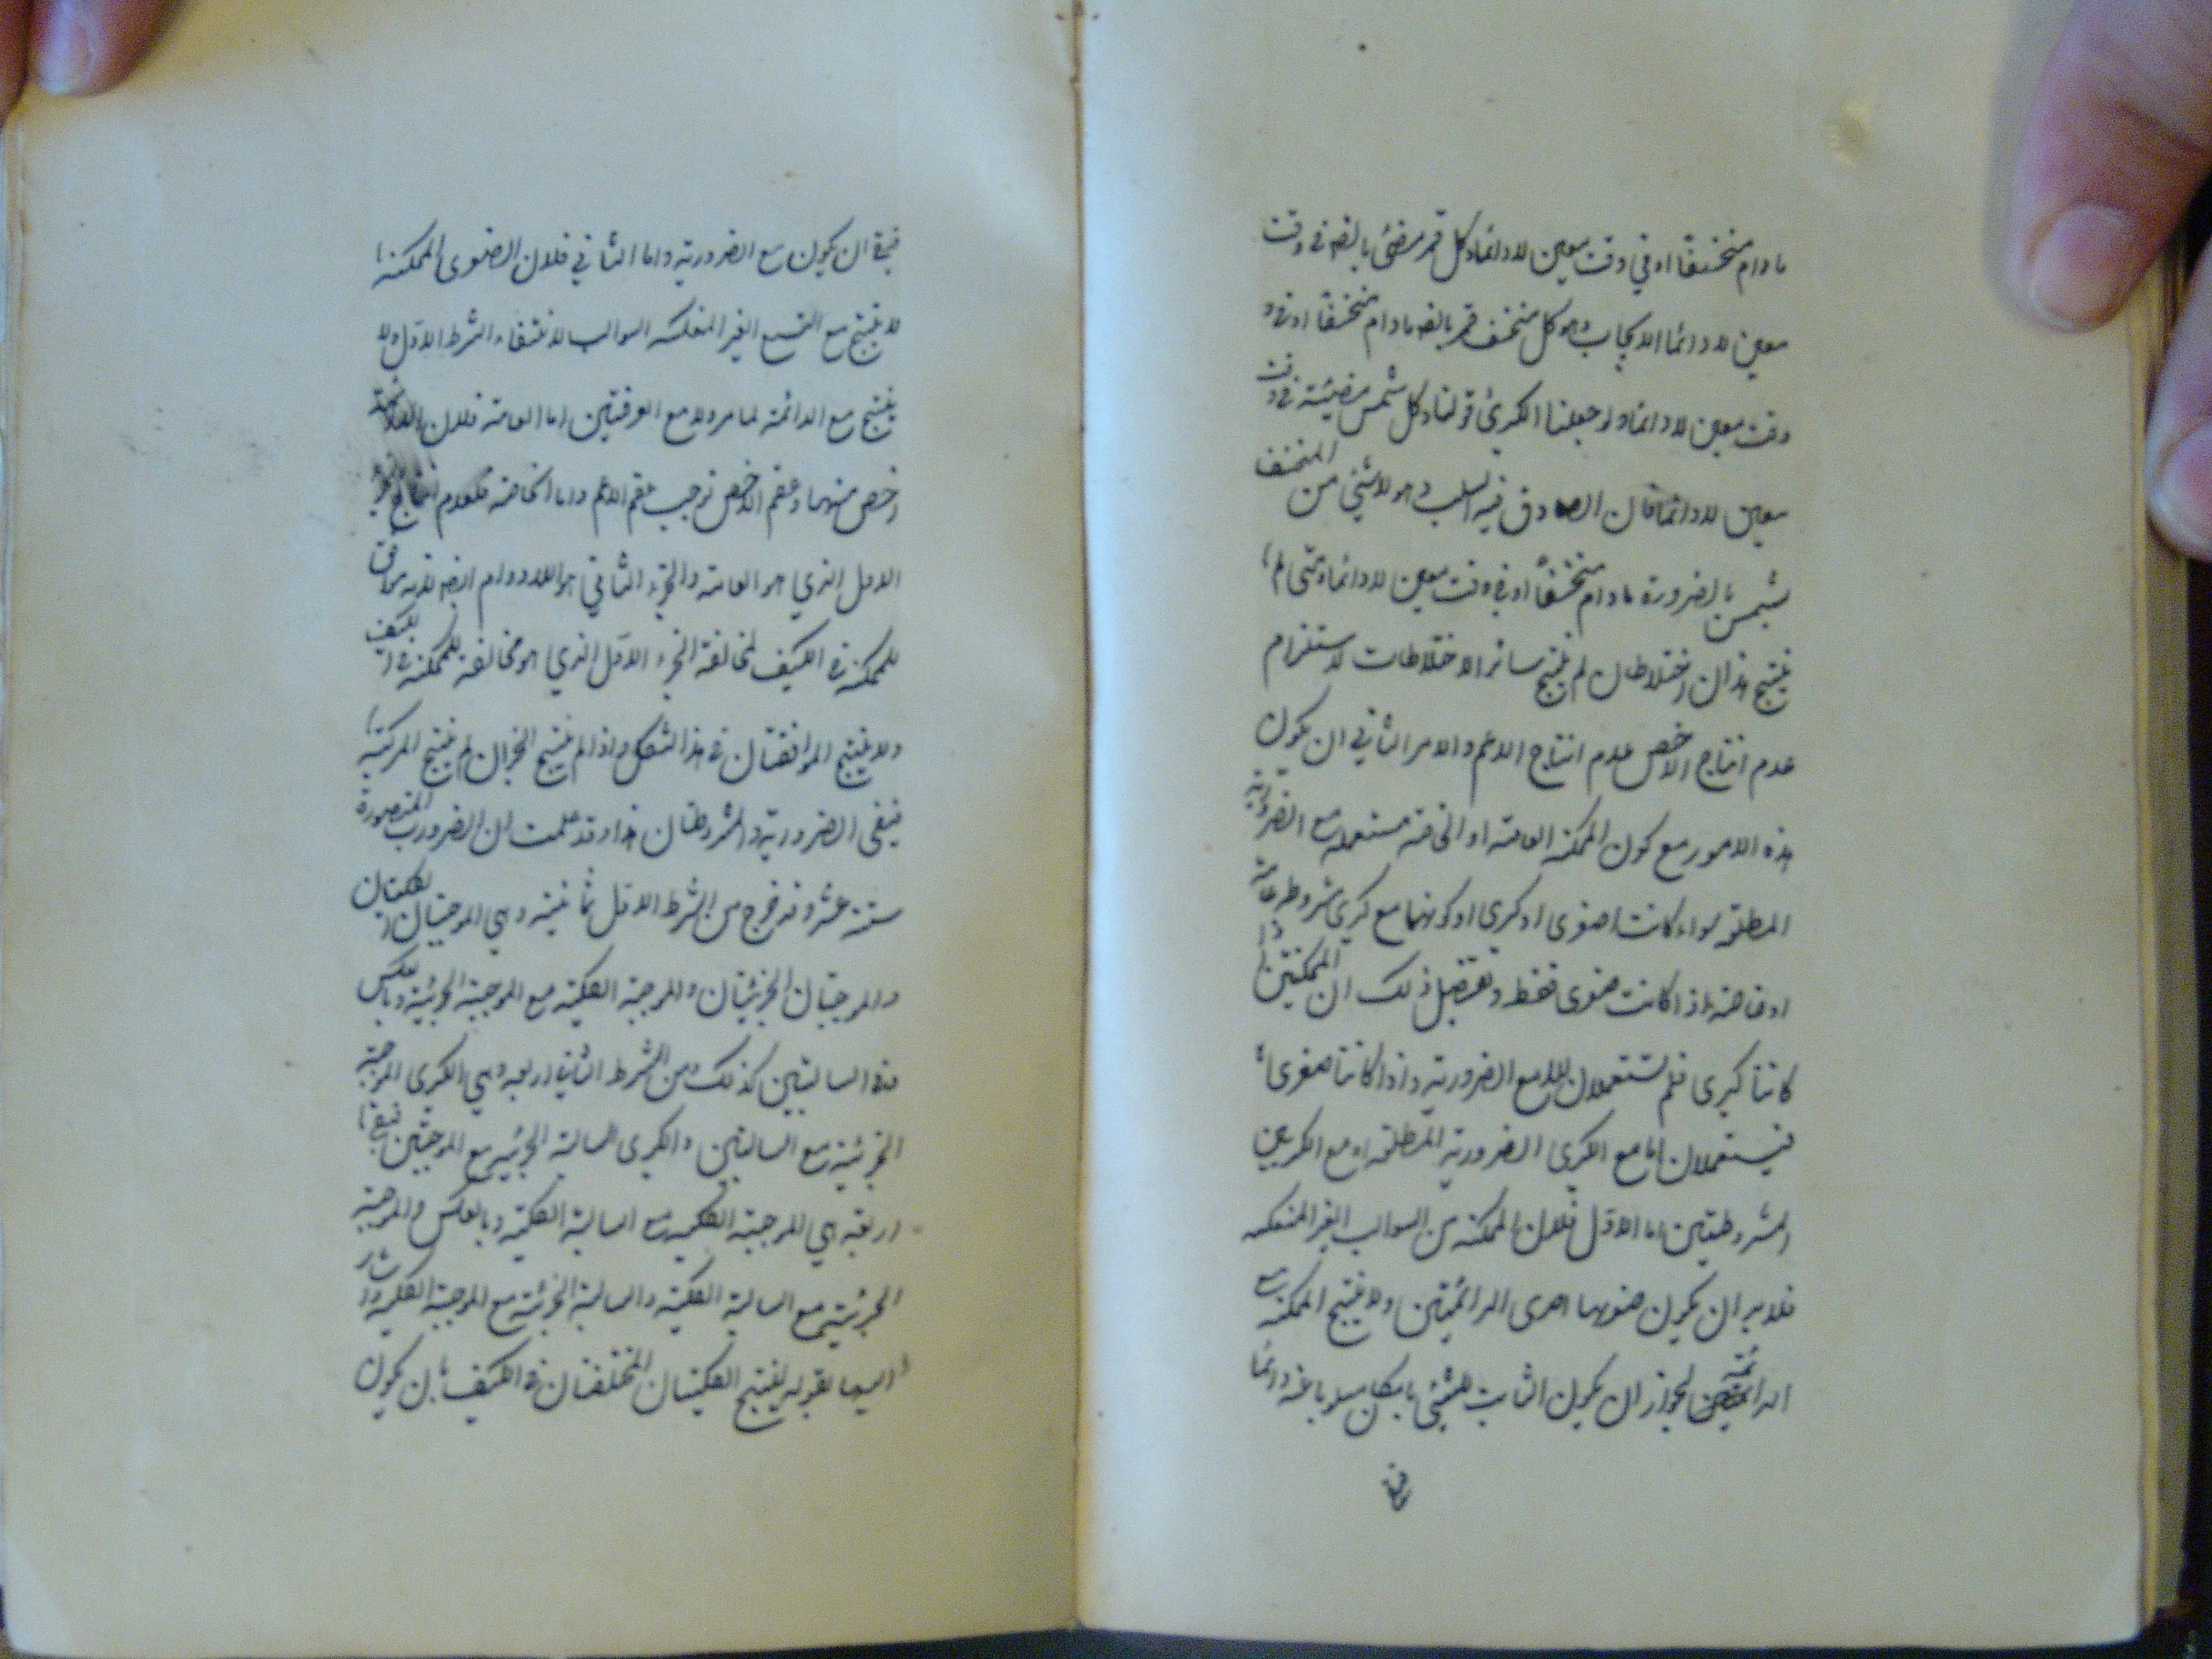 مادام منخسفًا او في وقت معين لا دائما وكل قمر مضئ بالضرورة في وقت
معين لا دائما الايجاب وهو كل منخسف قمر بالضرورة مادام منخسفًا او في و
وقت معين لا دائما ولو جعلنا الكبرئ قولنا وكل شمس مضيئة في وقت
معين لا دائما كان الصادق فيه السلب وهو لا شئي من المنخسف
بشمس بالضرورة مادام منخسفًا او في وقت معين لا دائما ومتى لم
ينتج هذان الاختلاطان لم ينتج سائر الاختلاطات لاستلزام
عدم انتاج الاخص عدم انتاج الاعم والامر الثاني ان يكون
هذه الامور مع كون الممكنة العامة او الخاصة مستعملة مع الضرورية
المطلقة سواء كانت صغرى او كبرى او كونها مع كبرى مشروطة عامة
او خاصة اذا كانت صغرى فقط وتفصيل ذلك ان الممكنتين اذا
كانتا كبرى فلم تستعملان الا مع الضرورية واذا كانتا صغرى
فيستعملان اما مع الكبرى الضرورية المطلقة او مع الكبريين
المشروطتين اما الاول فلان الممكنة من السوالب الغير المنعكسة
فلا بد ان يكون صغريها احدى الدائمتين ولا ينتج الممكنة مع
الدائمة لجواز ان يكون الثابت للشئي بامكان مسلوبا عنه دائما
فيبقى ان يكون مع الضرورية واما الثاني فلان الصغرى الممكنة
لا ينتج مع التسع الغير المنعكسة السوالب لانتفاء الشرط الاول ولا
ينتج مع الدائمة لما مر ولا مع العرفيتين اما العامة فلان الدائمة
اخص منها وعقم الاخص توجب عقم الاعم واما الخاصة فلعدم انتاج الجزء
الاول الذي هو العامة والجزء الثاني هو اللادوام ايضا لانه موافق
للممكنة في الكيف لمخالفة الجزء الاول الذي هو مخالفة للممكنة في الكيف
ولا ينتج الموافقتان في هذا الشكل واذا لم ينتج الجزان لم ينتج المركبة
فيبقى الضرورية والمشروطتان هذا وقد علمت ان الضروب المتصورة
ستة عشر وقد خرج من الشرط الاول ثمانية وهي الموجبتان الكليتان
والموجبتان الجزئيتان والموجبة الكلية مع الموجبة الجزئية وبالعكس
وفي السالبتين كذلك ومن الشرط الثاني اربعة وهي الكبرى الموجبة
الجزئية مع السالبتين والكبرى السالبة الجزئية مع الموجبتين فبقى
اربعة هي الموجبة الكلية مع السالبة الكلية وبالعكس والموجبة
الجزئية مع السالبة الكلية والسالبة الجزئية مع الموجبة الكلية واشار
اليها بقوله لينتج الكليتان المختلفتان في الكيف بان يكون